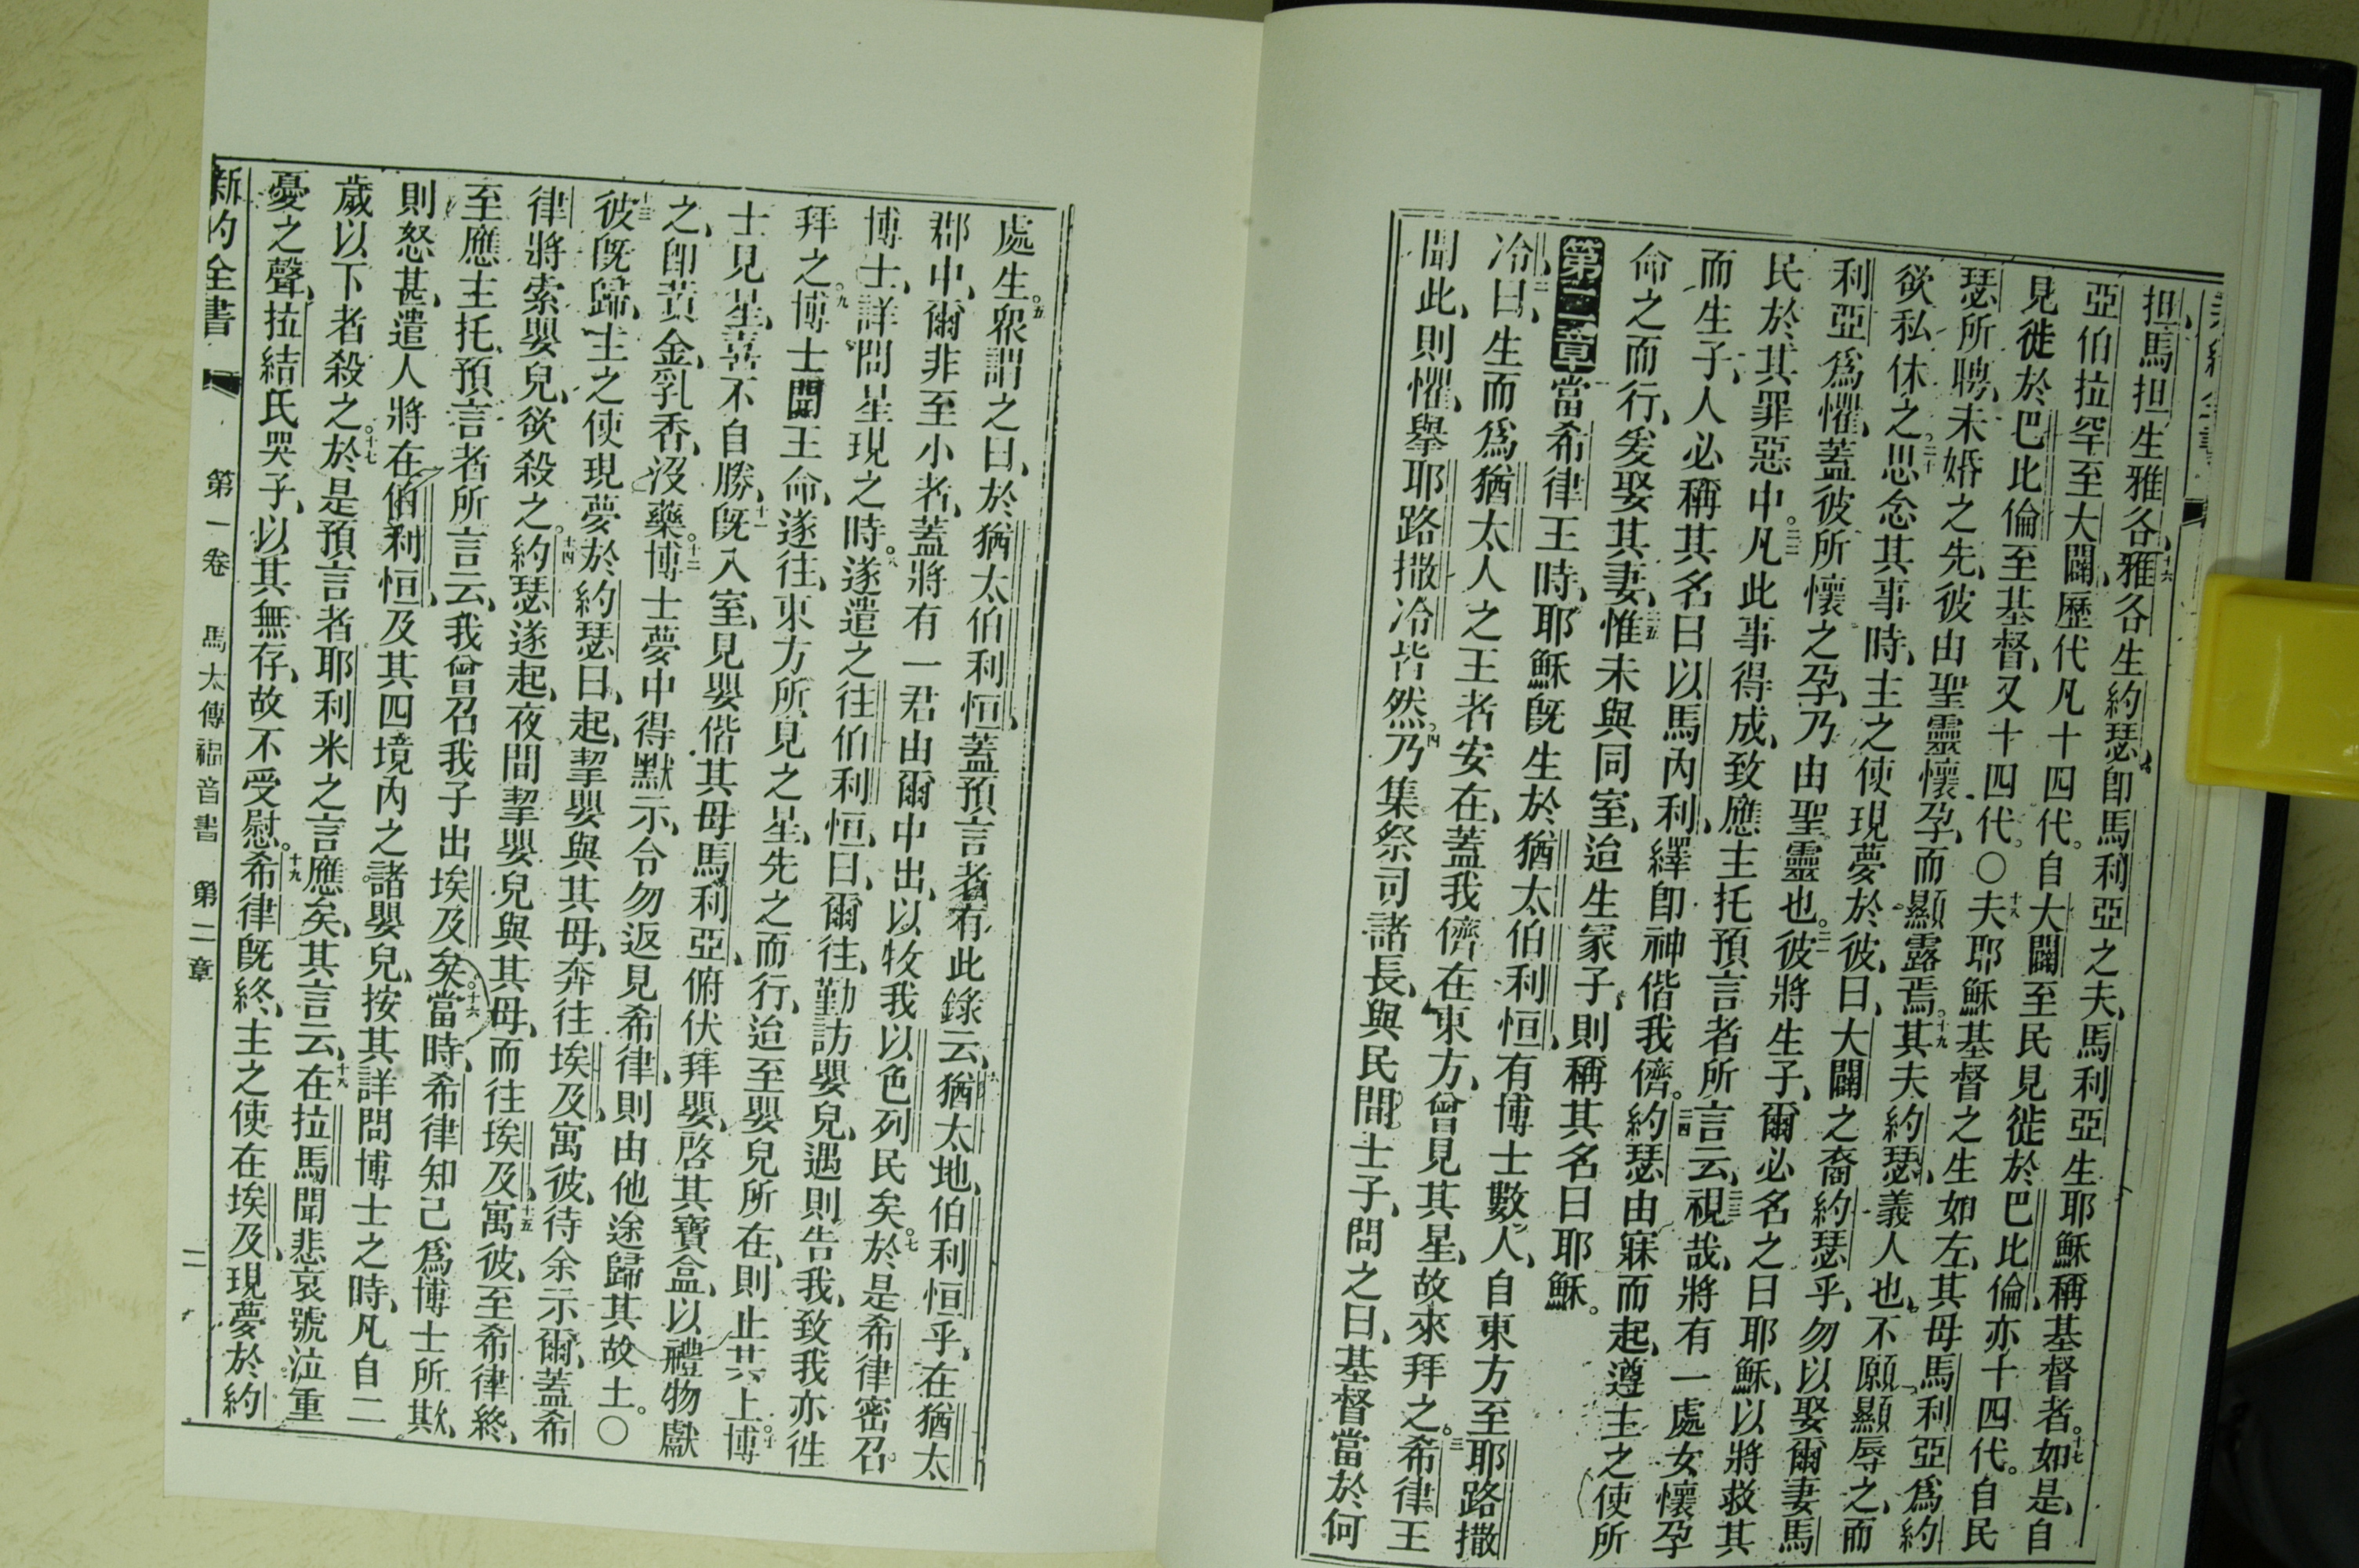 担馬担生雅各、十六雅各生約瑟、卽馬利亞之夫、馬利亞生耶穌稱基督者。十七如是、自
亞伯拉罕至大闢、歷代凡十四代。自大闢至民見徙於巴比倫、亦十四代。自民
見徙於巴比倫至基督、又十四代。〇十八夫耶穌基督之生如左、其母馬利亞爲約
瑟所聘、未婚之先、彼由聖靈懷孕、而顯露焉。十九其夫約瑟、義人也、不願顯辱之、而
欲私休之。二十思念其事時、主之使現夢於彼、曰、大闢之裔約瑟乎、勿以娶爾妻馬
利亞爲懼、蓋彼所懷之孕、乃由聖靈也。二一彼將生子、爾必名之曰耶穌、以將救其
民於其罪惡中。二二凡此事得成、致應主托預言者所言云、二三視哉、將有一處女懷孕
而生子、人必稱其名曰以馬內利、繹卽神偕我儕。二四約瑟由寐而起、遵主之使所
命之而行、爰娶其妻、二五惟未與同室、迨生冢子、則稱其名曰耶穌。
第二章當希律王時、耶穌旣生於猶太伯利恒、有博士數人、自東方至耶路撒
冷、二曰、生而爲猶太人之王者安在、蓋我儕在東方、曾見其星、故來拜之。三希律王
聞此、則懼、舉耶路撒冷皆然。四乃集祭司諸長、與民間士子、問之曰、基督當於何
處生。五眾謂之曰、於猶太伯利恒、蓋預言者有此錄云、六猶太地、伯利恒乎、在猶太
郡中、爾非至小者、蓋將有一君由爾中出、以牧我以色列民矣。七於是希律密召
博士、詳問星現之時。八遂遣之往伯利恒、曰、爾往、勤訪嬰兒、遇則告我、致我亦往
拜之。九博士聞王命、遂往、東方所見之星、先之而行、迨至嬰兒所在、則止其上。十博
士見星、喜不自勝、十一旣入室、見嬰偕其母馬利亞、俯伏拜嬰、啓其寶盒、以禮物獻
之、卽黃金、乳香、沒藥。十二博士夢中得默示、令勿返見希律、則由他途歸其故土。〇
十三彼旣歸、主之使現夢於約瑟曰、起、挈嬰與其母、奔往埃及、寓彼、待余示爾、蓋希
律將索嬰兒、欲殺之。十四約瑟遂起、夜間挈嬰兒與其母、而往埃及、十五寓彼、至希律終、
至應主托預言者所言云、我曾召我子出埃及矣。十六當時、希律知己爲博士所欺、
則怒甚、遣人將在伯利恒、及其四境內之諸嬰兒、按其詳問博士之時、凡自二
歲以下者殺之。十七於是預言者耶利米之言應矣、其言云、十八在拉馬聞悲哀號泣重
憂之聲、拉結氏哭子、以其無存、故不受慰。十九希律旣終、主之使在埃及、現夢於約
新約全書 第一卷 馬太傳福音書 第二章 二